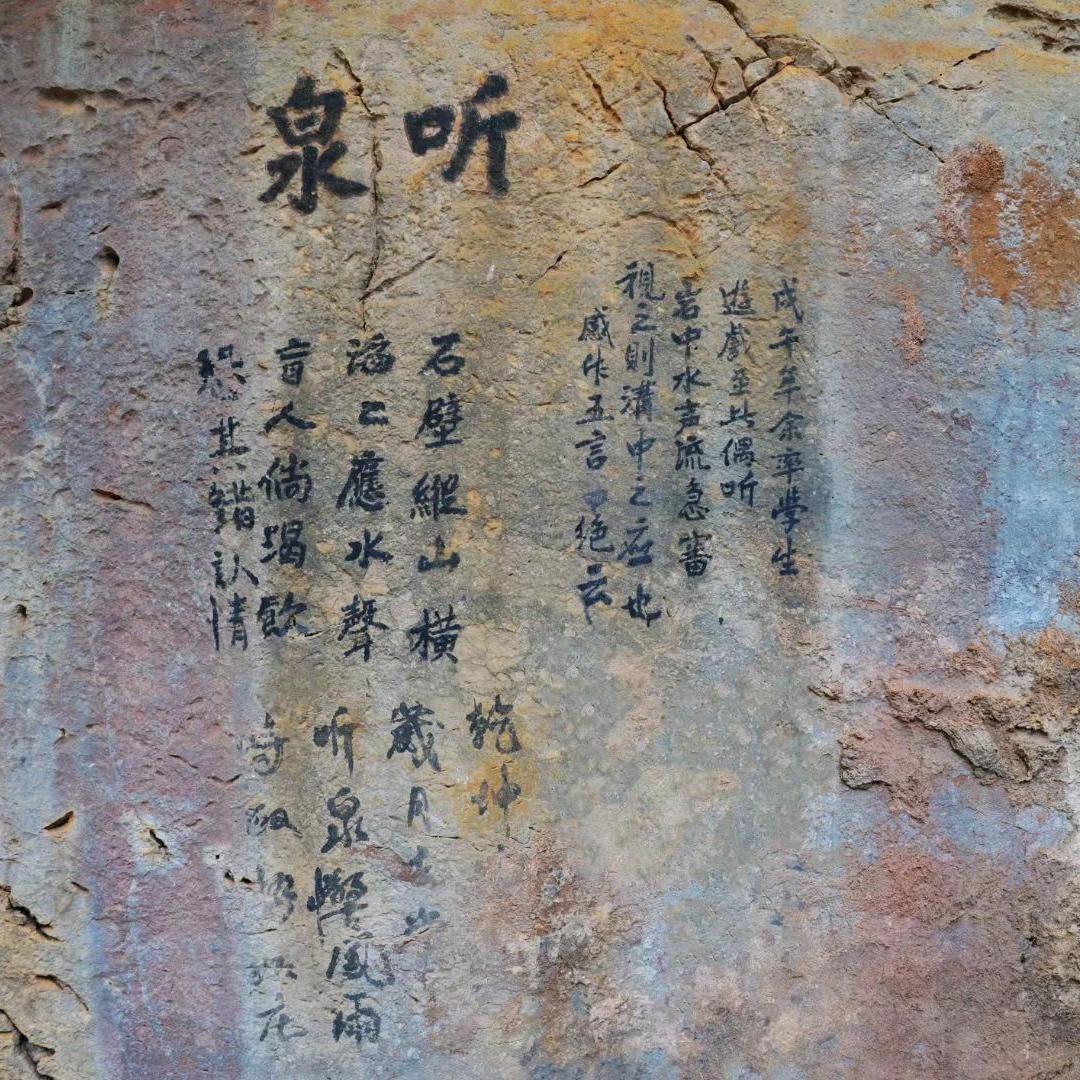 听泉
戊午年余率學生
遊戲至此偶听
岩中水声流急審
視之則溝中之应也
感作五言 绝云
石壁縱山橫
滔〻應水聲
盲人倘渴飲
恐其錯认情
乾坤
歲月
听泉 風雨